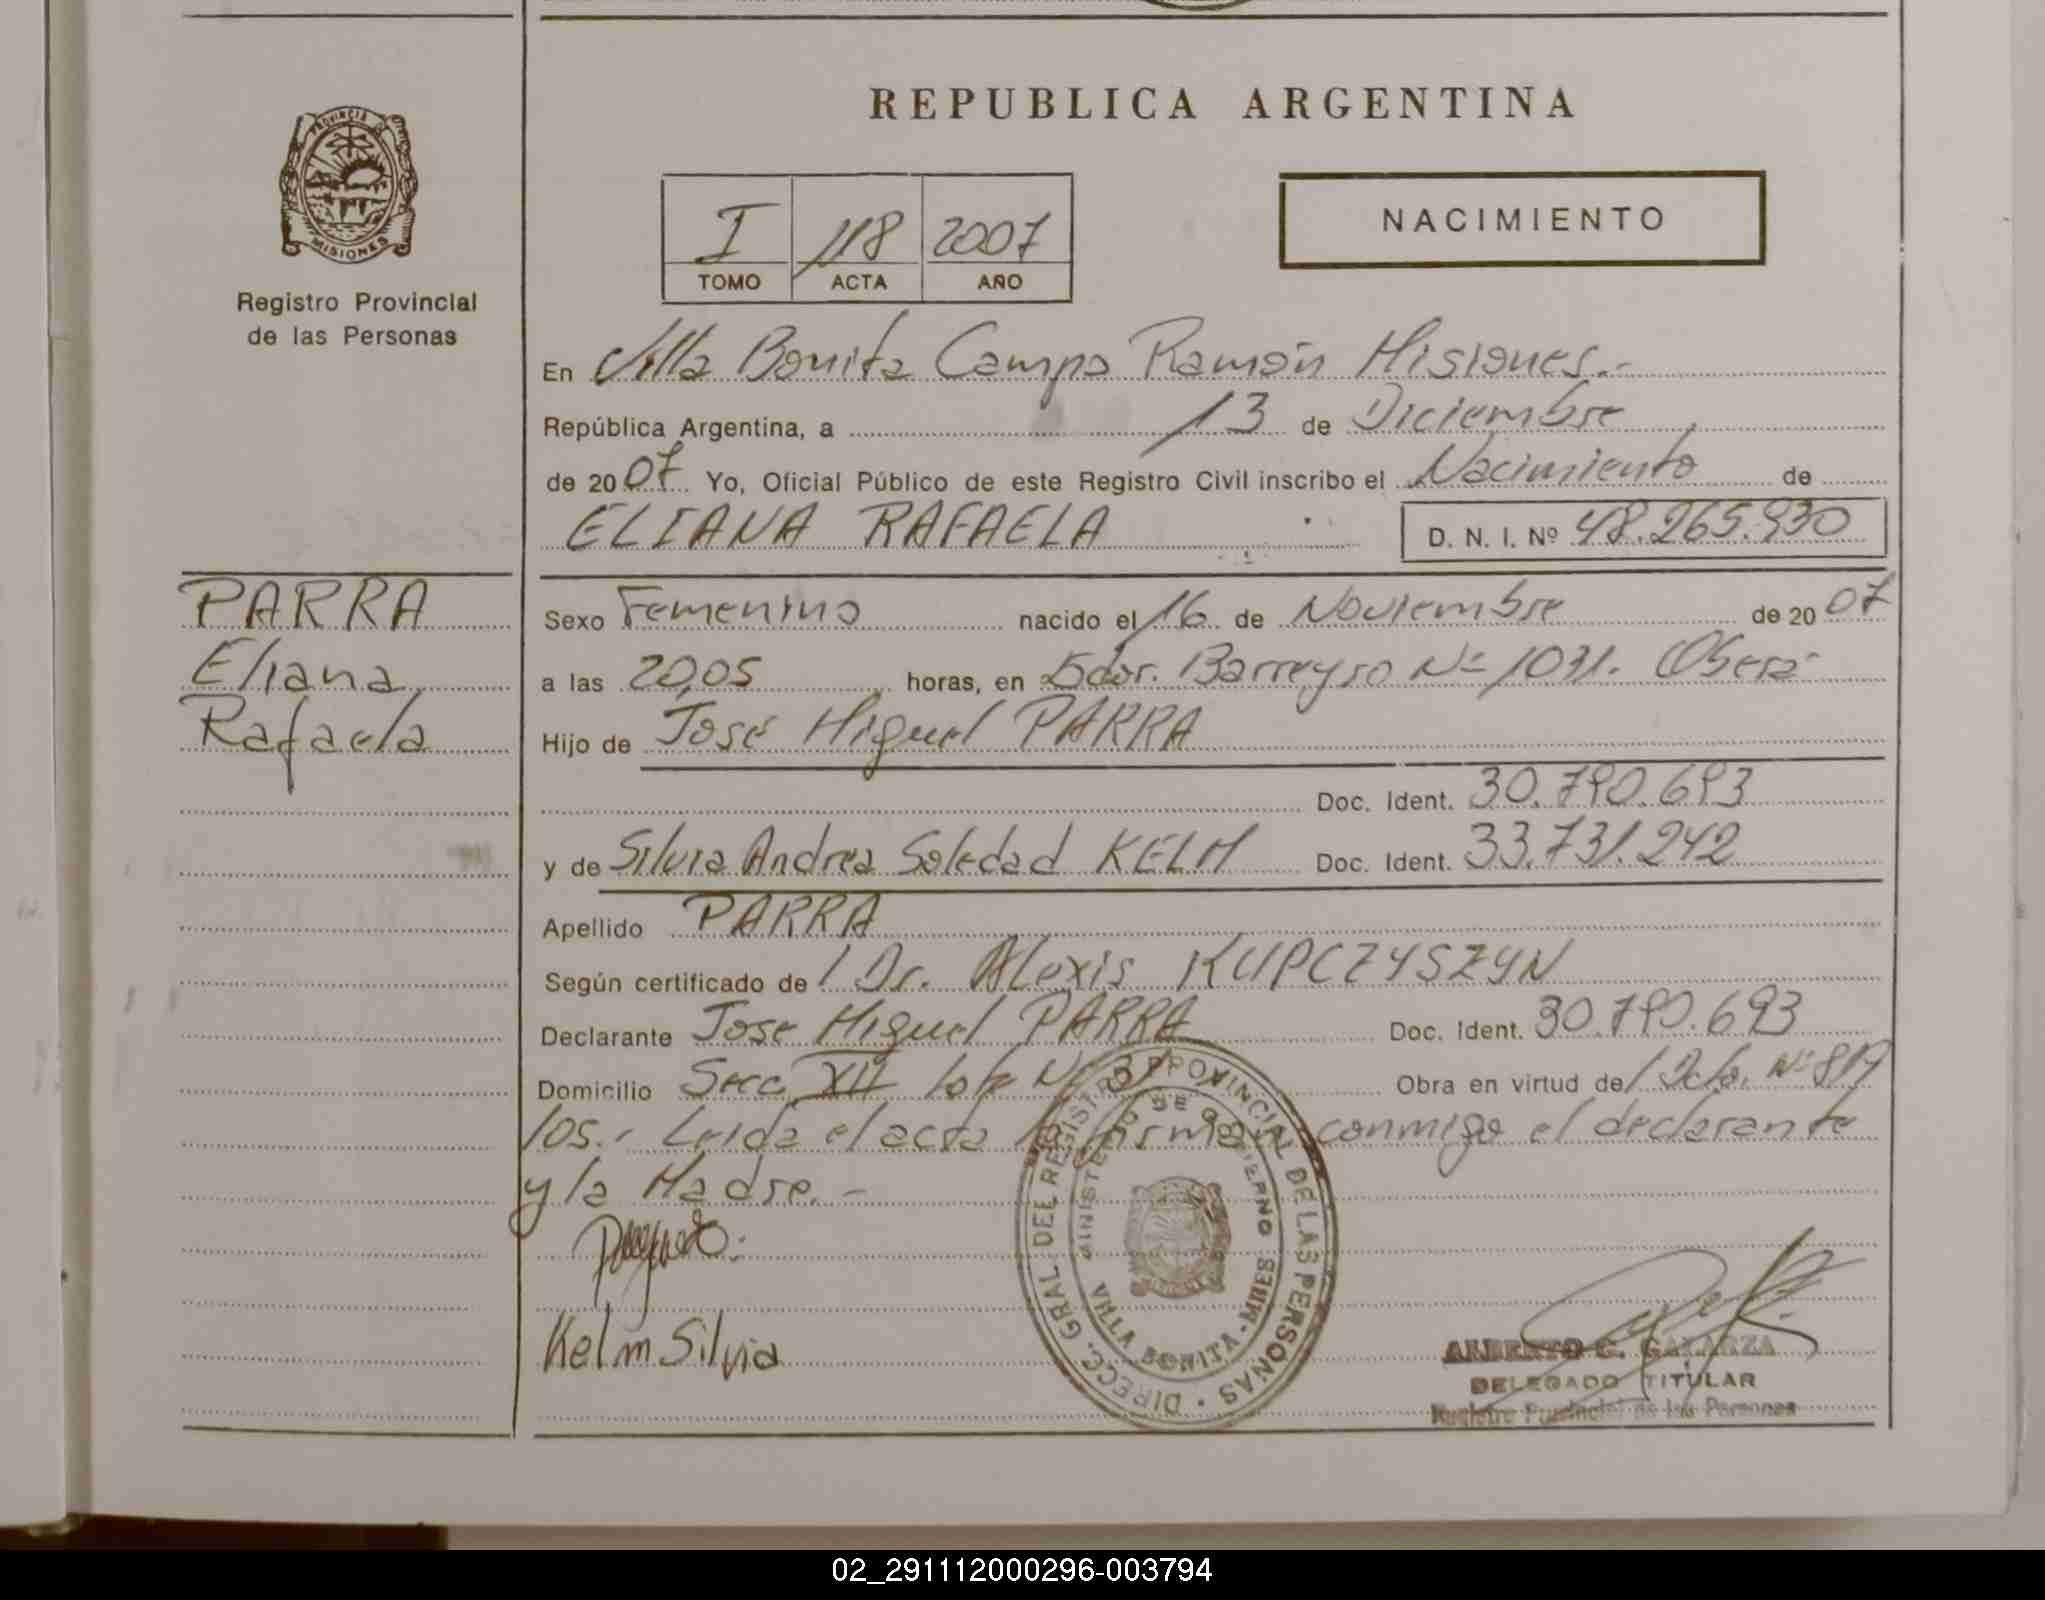 REPUBLICA ARGENTINA
PROVINCIA DE
MISIONES
Registro Provincial
de las Personas
I 118 2007
TOMO ACTA AÑO
NACIMIENTO
En Villa Bonita Campo Ramón Misiones.-
República Argentina, a 13 de Diciembre
de 2007 Yo, Oficial Público de este Registro Civil inscribo el Nacimiento de
ELIANA RAFAELA D. N. I. Nº 48.265.930
PARRA
Eliana
Rafaela
Sexo Femenino nacido el 16 de Noviembre de 2007
a las 20,05 horas, en Bdor. Barreyro Nº 1031. Oberá
Hijo de José Miguel PARRA
Doc. Ident. 30.790.693
y de Silvia Andrea Soledad KELM Doc. Ident. 33.731.242
Apellido PARRA
Según certificado de l Dr. Alexis KUPCZYSZYN
Declarante Jose Miguel PARRA Doc. Ident. 30.790.693
Domicilio Secc. XII lote Nº Obra en virtud de l Dcto. Nº
los.- Leida el acta la firman conmigo el declarante
y la Madre.-
Kelm Silvia
DIRECC. GRAL. DEL REGISTRO PROVINCIAL DE LAS PERSONAS
MINISTERIO DE GOBIERNO
VILLA BONITA - MNES
ALBERTO C. GALARZA
DELEGADO TITULAR
Registro Provincial de las Personas
02_291112000296-003794